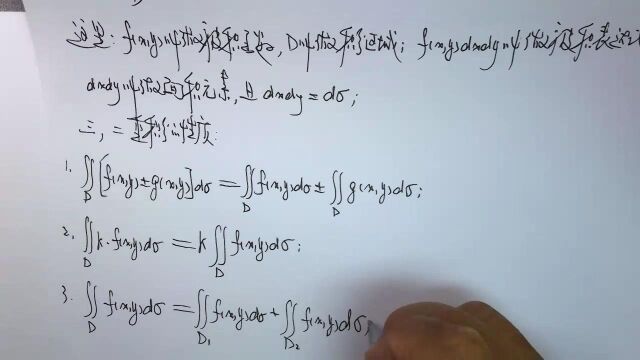 这里: f(x,y)叫做被积函数, D叫做积分区域; f(x,y)dxdy叫做被积表达式
dxdy叫做面积元素, 且 dxdy = dσ;
三, 二重积分的性质:
1. ∬_D [f(x,y) ± g(x,y)]dσ = ∬_D f(x,y)dσ ± ∬_D g(x,y)dσ;
2. ∬_D k·f(x,y)dσ = k ∬_D f(x,y)dσ;
3. ∬_D f(x,y)dσ = ∬_{D₁} f(x,y)dσ + ∬_{D₂} f(x,y)dσ;